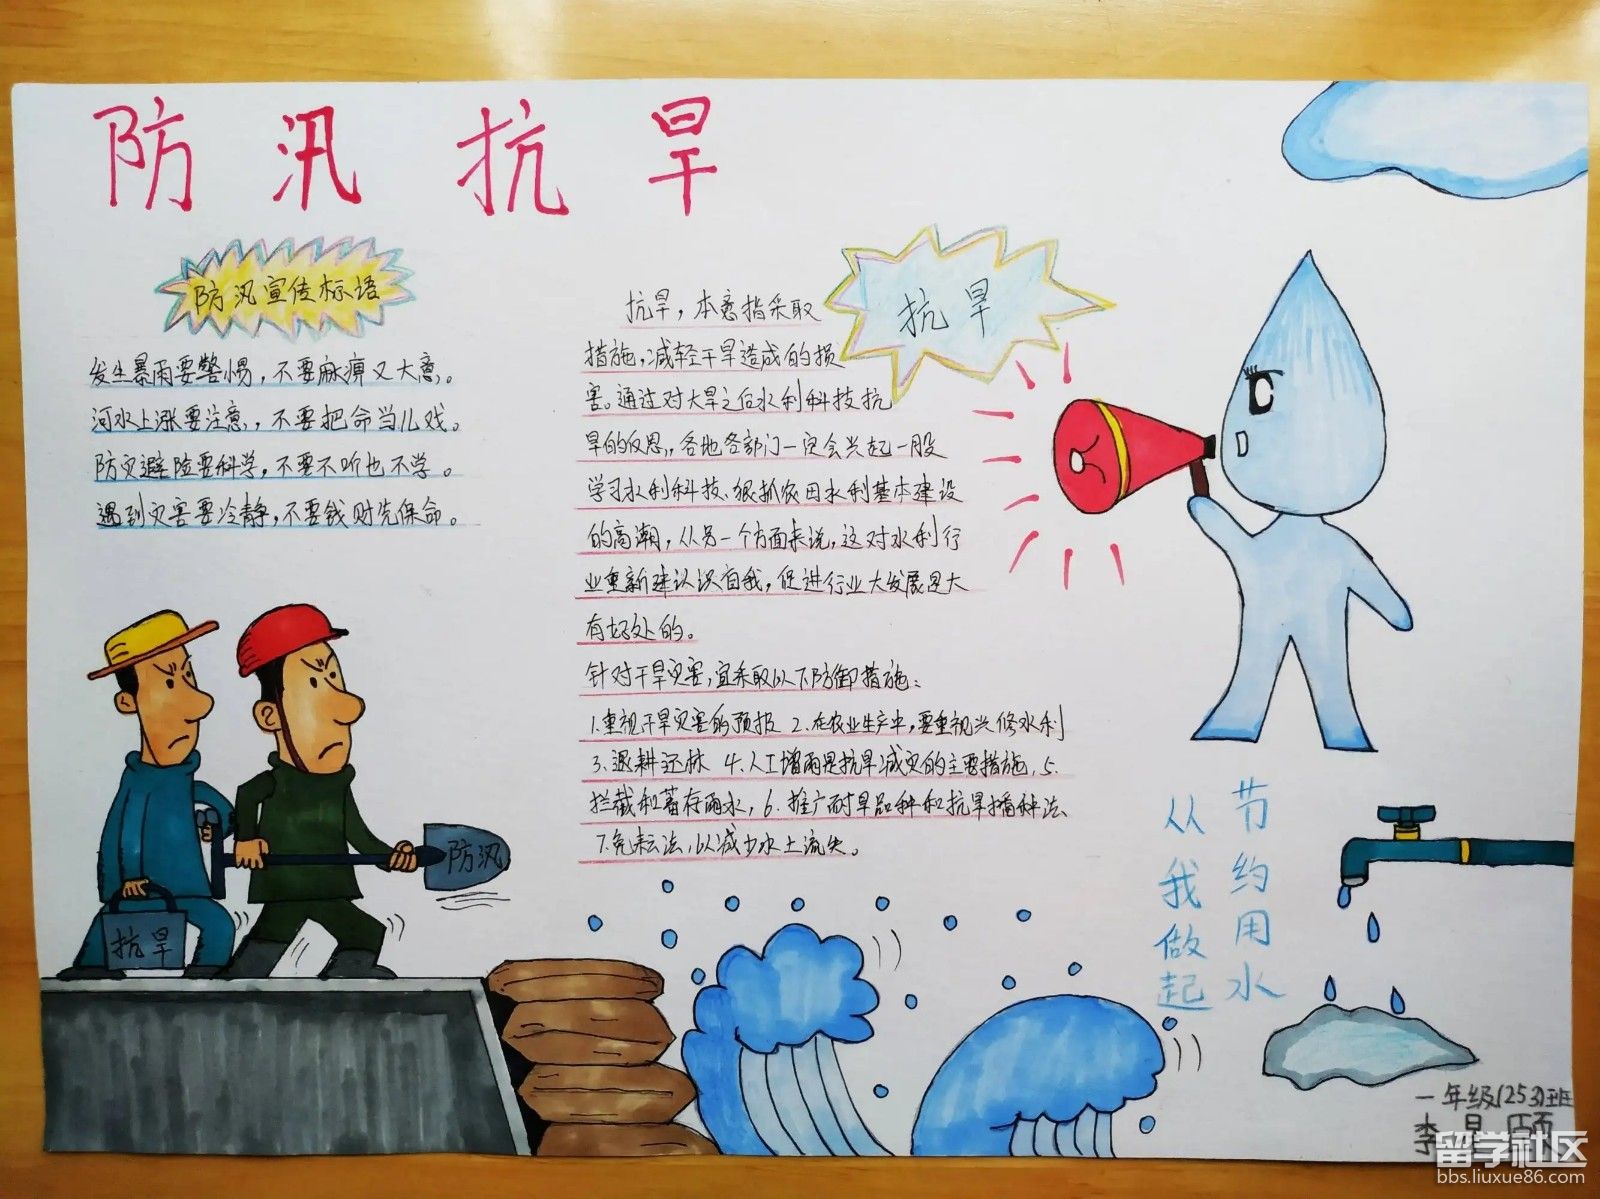 防汛抗旱
防汛宣传标语
发生暴雨要警惕，不要麻痹又大意。
河水上涨要注意，不要把命当儿戏。
防灾避险要科学，不要不听也不学。
遇到灾害要冷静，不要钱财先保命。
抗旱
抗旱，本意指采取
措施，减轻干旱造成的损
害。通过对大旱之后水利科技抗
旱的反思，各地各部门一定会兴起一股
学习水利科技、狠抓农田水利基本建设
的高潮，从另一个方面来说，这对水利行
业重新建认识自我，促进行业大发展是大
有好处的。
针对干旱灾害，宜采取以下防御措施：
1.重视干旱灾害的预报 2.在农业生产中，要重视兴修水利
3.退耕还林 4.人工增雨是抗旱减灾的主要措施，5.
拦截和蓄存雨水，6.推广耐旱品种和抗旱播种法、
7.免耘法，以减少水土流失。
防汛
抗旱
节约用水
从我做起
一年级(253)班
李
留学社区
bbs.liuxue86.com